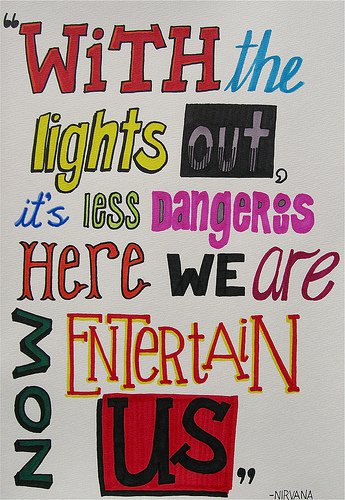 “WiTH the
lights out,
it's less DANGEROUS
Here WE are
NOW ENTERTAiN
US”
-NIRVANA